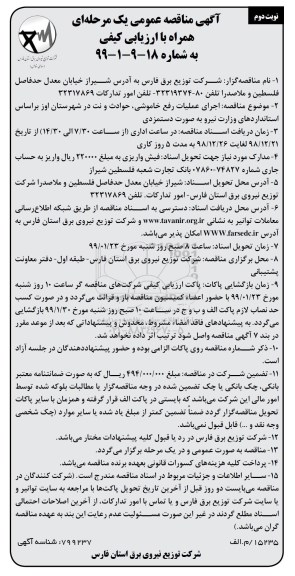 نوبت دوم
آگهی مناقصه عمومی یک مرحله‌ای
همراه با ارزیابی کیفی
به شماره ۱۸-۹-۱-۹۹
۱- نام مناقصه‌گزار: شرکت توزیع برق فارس به آدرس شیراز خیابان معدل حدفاصل
فلسطین و ملاصدرا تلفن ۸۰-۳۲۳۱۹۳۷۴- تلفن امور تدارکات ۳۲۳۱۷۸۶۹
۲- موضوع مناقصه: اجرای عملیات رفع خاموشی، حوادث و نت در شهرستان اوز براساس
استانداردهای وزارت نیرو به صورت دستمزدی
۳- زمان دریافت اسناد مناقصه: در ساعت اداری (از ساعت ۷/۳۰ الی ۱۴/۳۰) از تاریخ
۹۸/۱۲/۲۱ لغایت ۹۸/۱۲/۲۶ به مدت ۵ روز کاری
۴- مدارک مورد نیاز جهت تحویل اسناد: فیش واریزی به مبلغ ۲۲۰۰۰۰ ریال واریز به حساب
جاری شماره ۰۷۸۶۰۰۷۴۸۲۷ بانک تجارت شعبه فلسطین شیراز
۵- آدرس محل تحویل اسناد: شیراز خیابان معدل حدفاصل فلسطین و ملاصدرا شرکت
توزیع نیروی برق استان فارس- امور تدارکات، تلفن ۳۲۳۱۷۸۶۹
۶- آدرس محل دریافت اسناد: دسترسی به اسناد مناقصه از طریق شبکه اطلاع‌رسانی
معاملات توانیر به نشانی www.tavanir.org.ir و شرکت توزیع نیروی برق استان فارس به
آدرس WWW.farsedc.ir امکان پذیر می‌باشد.
۷- زمان تحویل اسناد: ساعت ۸ صبح روز شنبه مورخ ۹۹/۰۱/۲۳
۸- محل برگزاری مناقصه: شرکت توزیع نیروی برق استان فارس- طبقه اول- دفتر معاونت
پشتیبانی
۹- زمان بازگشایی پاکات: پاکت ارزیابی کیفی شرکت‌های مناقصه گر ساعت ۱۰ روز شنبه
مورخ ۹۹/۰۱/۲۳ با حضور اعضاء کمیسیون مناقصه باز و قرائت می‌گردد و در صورت کسب
حد نصاب لازم پاکت الف و ب و ج در ساعت ۱۰ صبح روز شنبه مورخ ۹۹/۱/۳۰ بازگشایی
می‌گردد. به پیشنهادهای فاقد امضاء مشروط، مخدوش و پیشنهاداتی که بعد از موعد مقرر
در بند ۷ آگهی مناقصه واصل شود ترتیب اثر داده نخواهد شد.
۱۰- ذکر شماره مناقصه روی پاکات الزامی بوده و حضور پیشنهاددهندگان در جلسه آزاد
است.
۱۱- تضمین شرکت در مناقصه: مبلغ ۴۹۴/۰۰۰/۰۰۰ ریال که به صورت ضمانتنامه معتبر
بانکی، چک بانکی یا چک تضمین شده در وجه مناقصه‌گزار یا مطالبات بلوکه شده توسط
امور مالی این شرکت می‌باشد که بایستی در پاکت الف قرار گرفته و همزمان با سایر پاکات
تحویل مناقصه‌گزار گردد ضمناً تضمین کمتر از مبلغ یاد شده یا سایر موارد (چک شخصی
وجه نقد و ...) قابل قبول نمی‌باشد.
۱۲- شرکت توزیع برق فارس در رد یا قبول کلیه پیشنهادات مختار می‌باشد.
۱۳- مناقصه به صورت عمومی و در یک مرحله برگزار می‌گردد.
۱۴- پرداخت کلیه هزینه‌های کسورات قانونی بعهده برنده مناقصه می‌باشد.
۱۵- سایر اطلاعات و جزئیات مربوط در اسناد مناقصه مندرج است. (شرکت کنندگان در
مناقصه می‌بایست دو روز قبل از آخرین تاریخ تحویل پاکت‌ها با مراجعه به سایت توانیر و
یا سایت شرکت توزیع برق فارس و یا تماس با امور تدارکات، از آخرین اصلاحات احتمالی
اسناد مطلع گردند در غیر این صورت مسئولیت عدم رعایت این بند به عهده مناقصه
گران می‌باشد.)
۱۵۲۳۵/م.الف شناسه آگهی: ۷۹۹۲۳۷
شرکت توزیع نیروی برق استان فارس